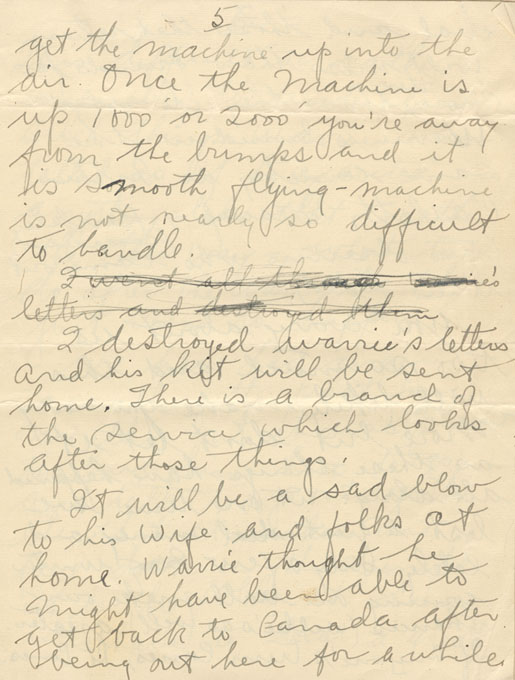 5
get the machine up into the
air. Once the machine is
up 1000' or 2000' you're away
from the bumps and it
is smooth flying - machine
is not nearly so difficult
to handle.
I went all through Warrie's
letters and destroyed them
I destroyed Warrie's letters
and his kit will be sent
home. There is a branch of
the service which looks
after those things.
It will be a sad blow
to his wife and folks at
home. Warrie thought he
might have been able to
get back to Canada after
being out here for a while.